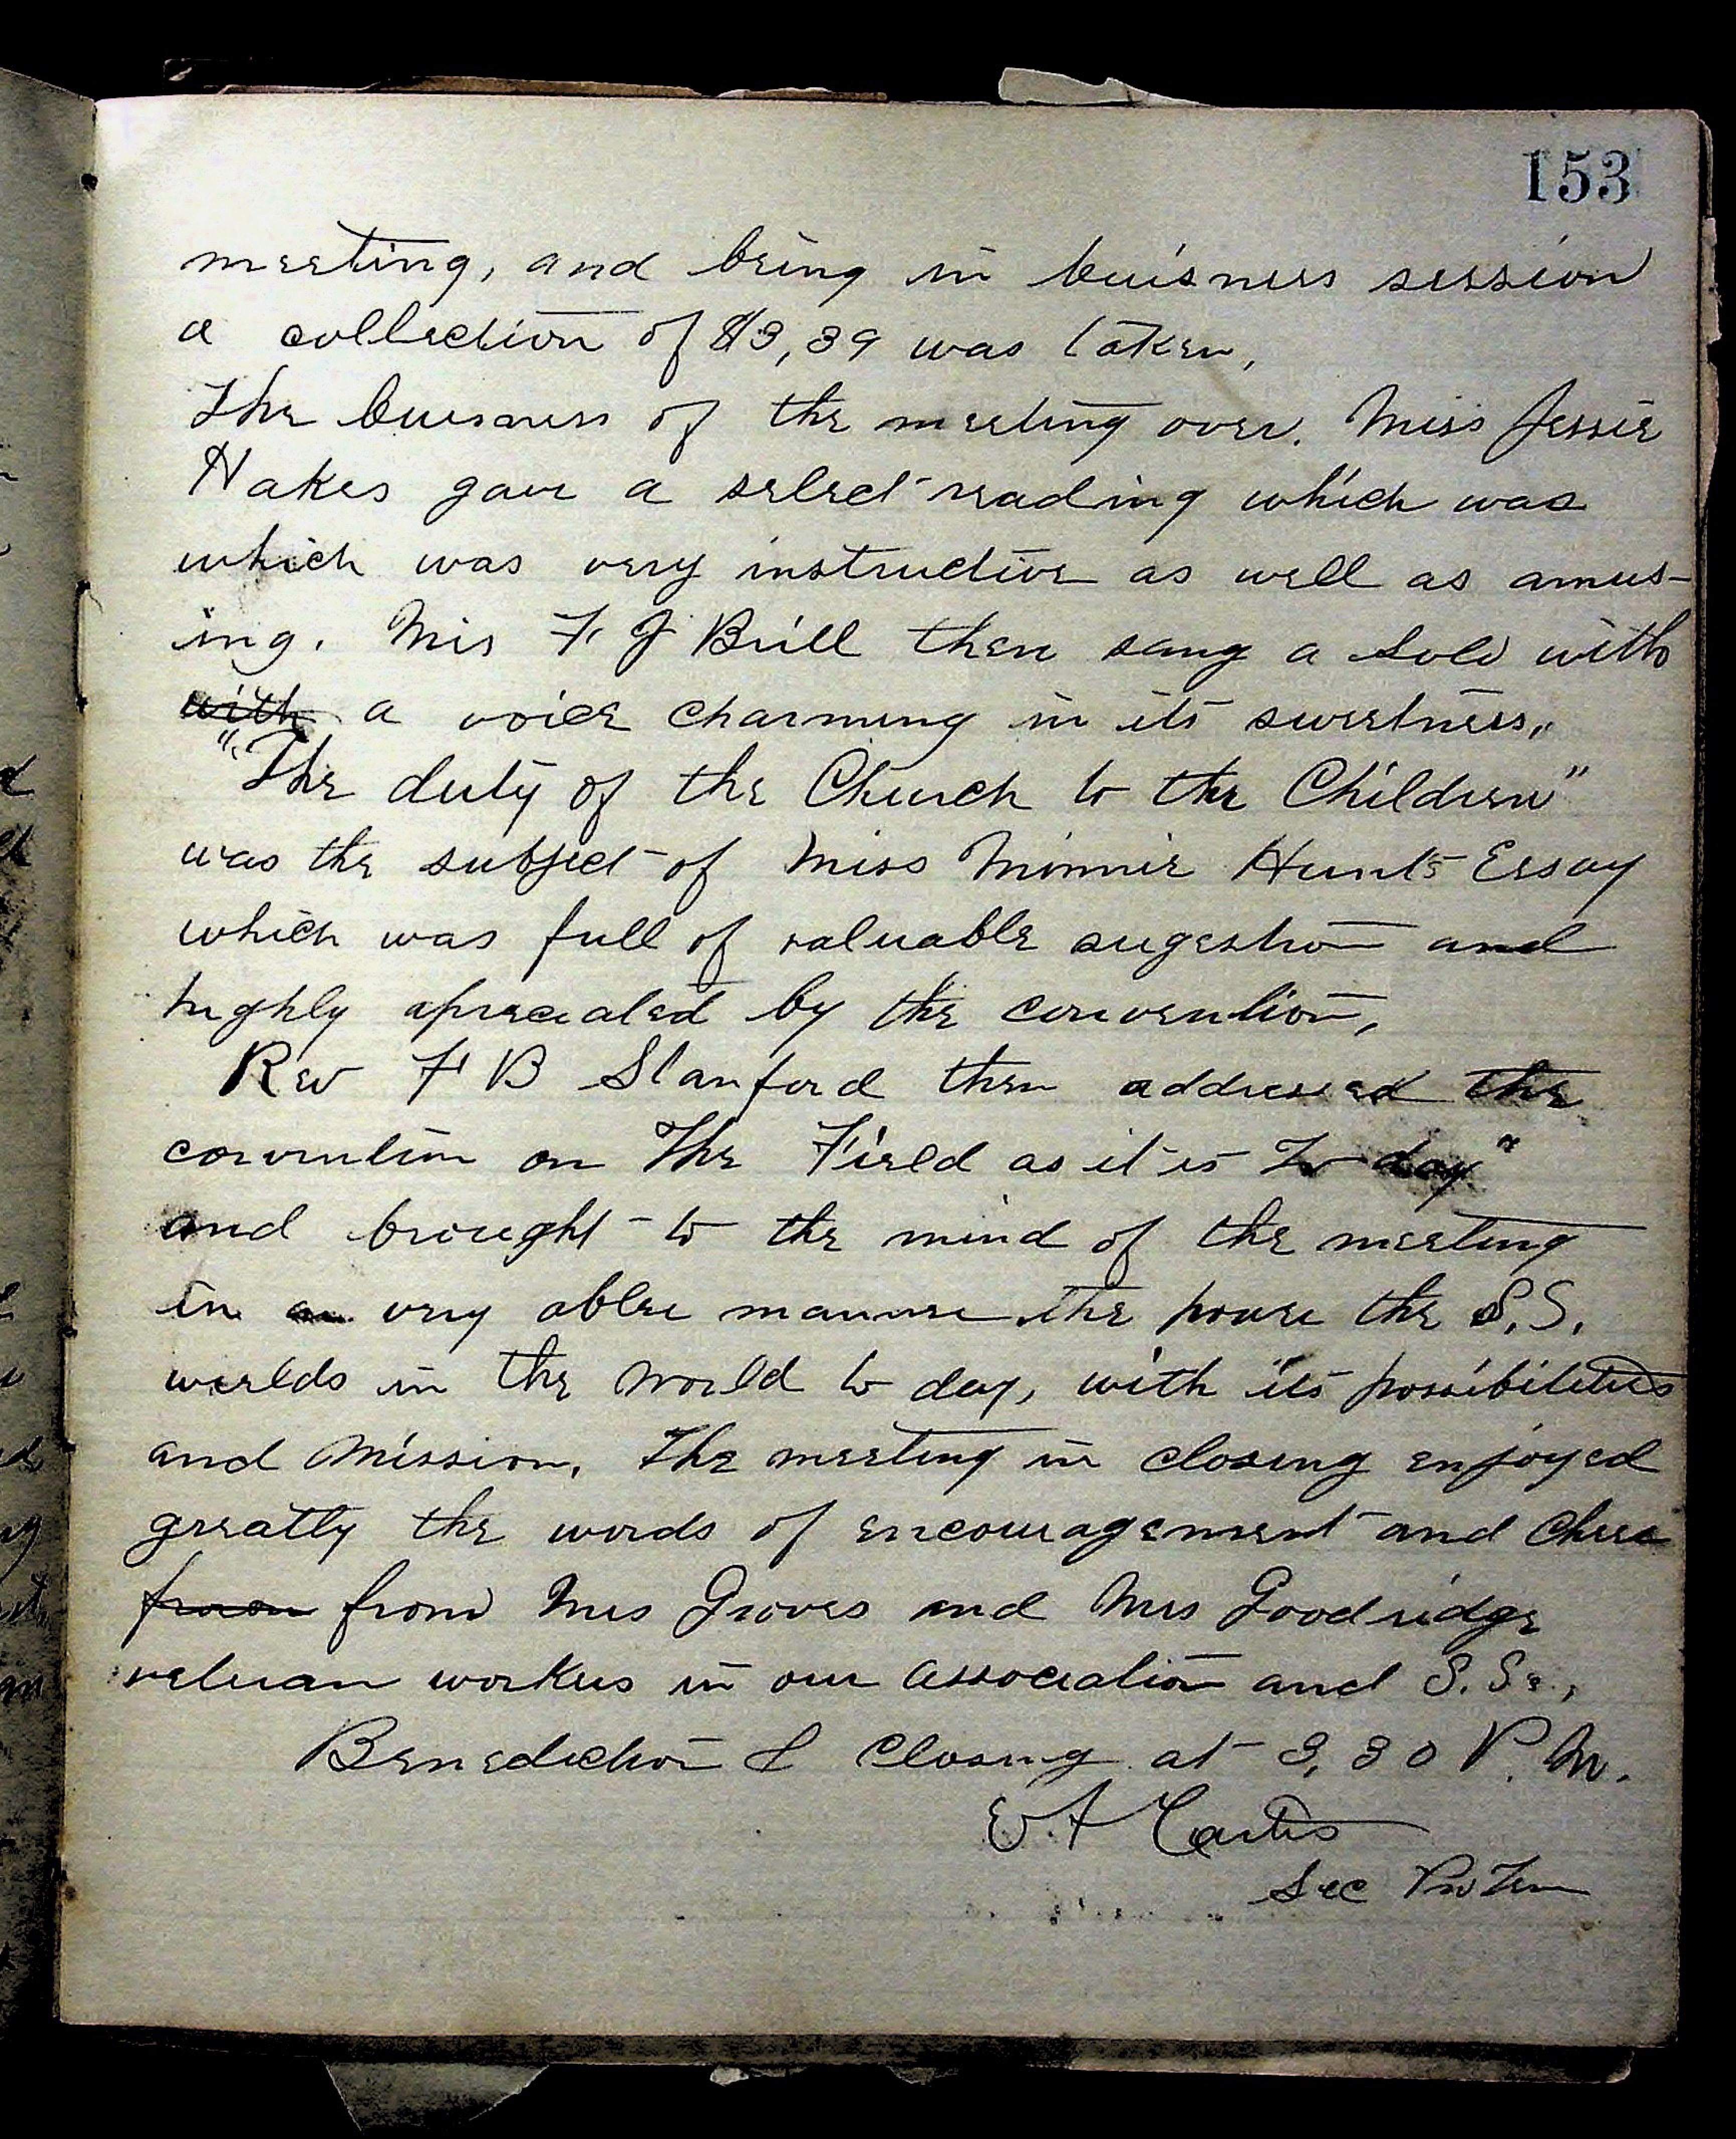 153
meeting, and being in buisness session
a collection of $3,39 was taken,
The buisness of the meeting over. Miss Jessie
Hakes gave a select reading which was
which was very instructive as well as amus-
ing. Mrs F. J Brill then sang a Solo with
with a voice charming in its sweetness,
"The duty of the Church to the Children"
was the subject of Miss Minnie Hunts Essay
which was full of valuable sugestion and
highly apreciated by the convention,
Rev F B Stanford then addressed the
convention on The Field as it is To day"
and brought to the mind of the meeting
in a very able manner the power the S.S.
weilds in the world to day, with its possibilities
and Mission. The meeting in closing enjoyed
greatly the words of encouragement and Cheer
from from Mrs Groves and Mrs Goodridge
veteran workers in our association and S.Ss,
Benediction & Closing at 3,30 P.M.
Curtis
Sec Pro Tem